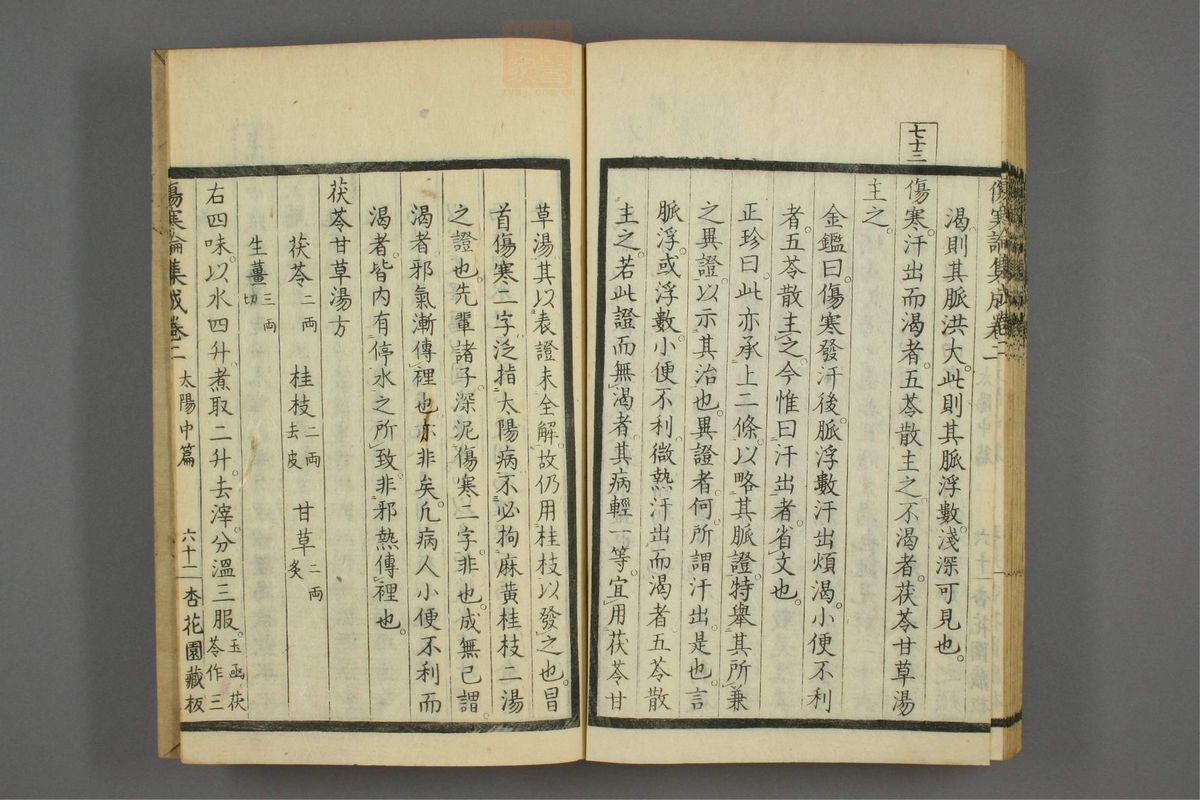 七十三
傷寒論集成卷二
渴則其脈洪大。此則其脈浮數。淺深可見也。
傷寒。汗出而渴者。五苓散主之。不渴者。茯苓甘草湯
主之。
金鑑曰。傷寒發汗後。脈浮數汗出煩渴。小便不利
者。五苓散主之。今惟曰汗出者。省文也。
正珍曰。此亦承上二條。以略其脈證。特舉其所兼
之異證。以示其治也。異證者何。所謂汗出。是也。言
脈浮。或浮數。小便不利。微熱汗出而渴者。五苓散
主之。若此證而無渴者。其病輕一等。宜用茯苓甘
草湯。其以表證未全解。故仍用桂枝以發之也。冒
首傷寒二字。泛指太陽病。不必拘麻黃桂枝二湯
之證也。先輩諸子。深泥傷寒二字。非也。成無已謂。
渴者。邪氣漸傳裡也。亦非矣。凡病人小便不利而
渴者。皆內有停水之所致。非邪熱傳裡也。
茯苓甘草湯方
茯苓二兩 桂枝二兩去皮 甘草二兩炙
生薑三兩切
右四味。以水四升。煮取二升。去滓。分溫三服。玉函茯苓作三
傷寒論集成卷二 太陽中篇 六十二 杏花園藏板